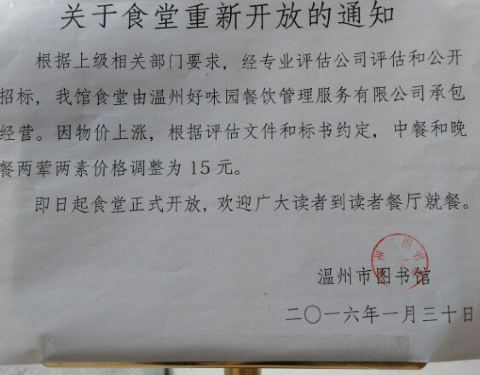 关于食堂重新开放的通知
根据上级相关部门要求，经专业评估公司评估和公开
招标，我馆食堂由温州好味园餐饮管理服务有限公司承包
经营。因物价上涨，根据评估文件和标书约定，中餐和晚
餐两荤两素价格调整为 15 元。
即日起食堂正式开放，欢迎广大读者到读者餐厅就餐。
温州市图书馆
二〇一六年一月三十日